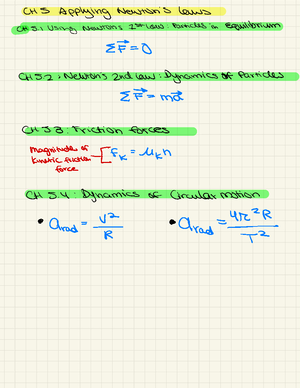 CH 5 Applying Newton's Laws
CH 5.1 Using Newton's 1st Law: Particles in Equilibrium
ΣF⃗ = 0
CH 5.2: Newton's 2nd Law: Dynamics of Particles
ΣF⃗ = ma⃗
CH 5.3: Friction forces
Magnitude of
kinetic friction
force
fₖ = μₖn
CH 5.4: Dynamics of Circular motion
• a_rad = v²/R
• a_rad = 4π²R/T²